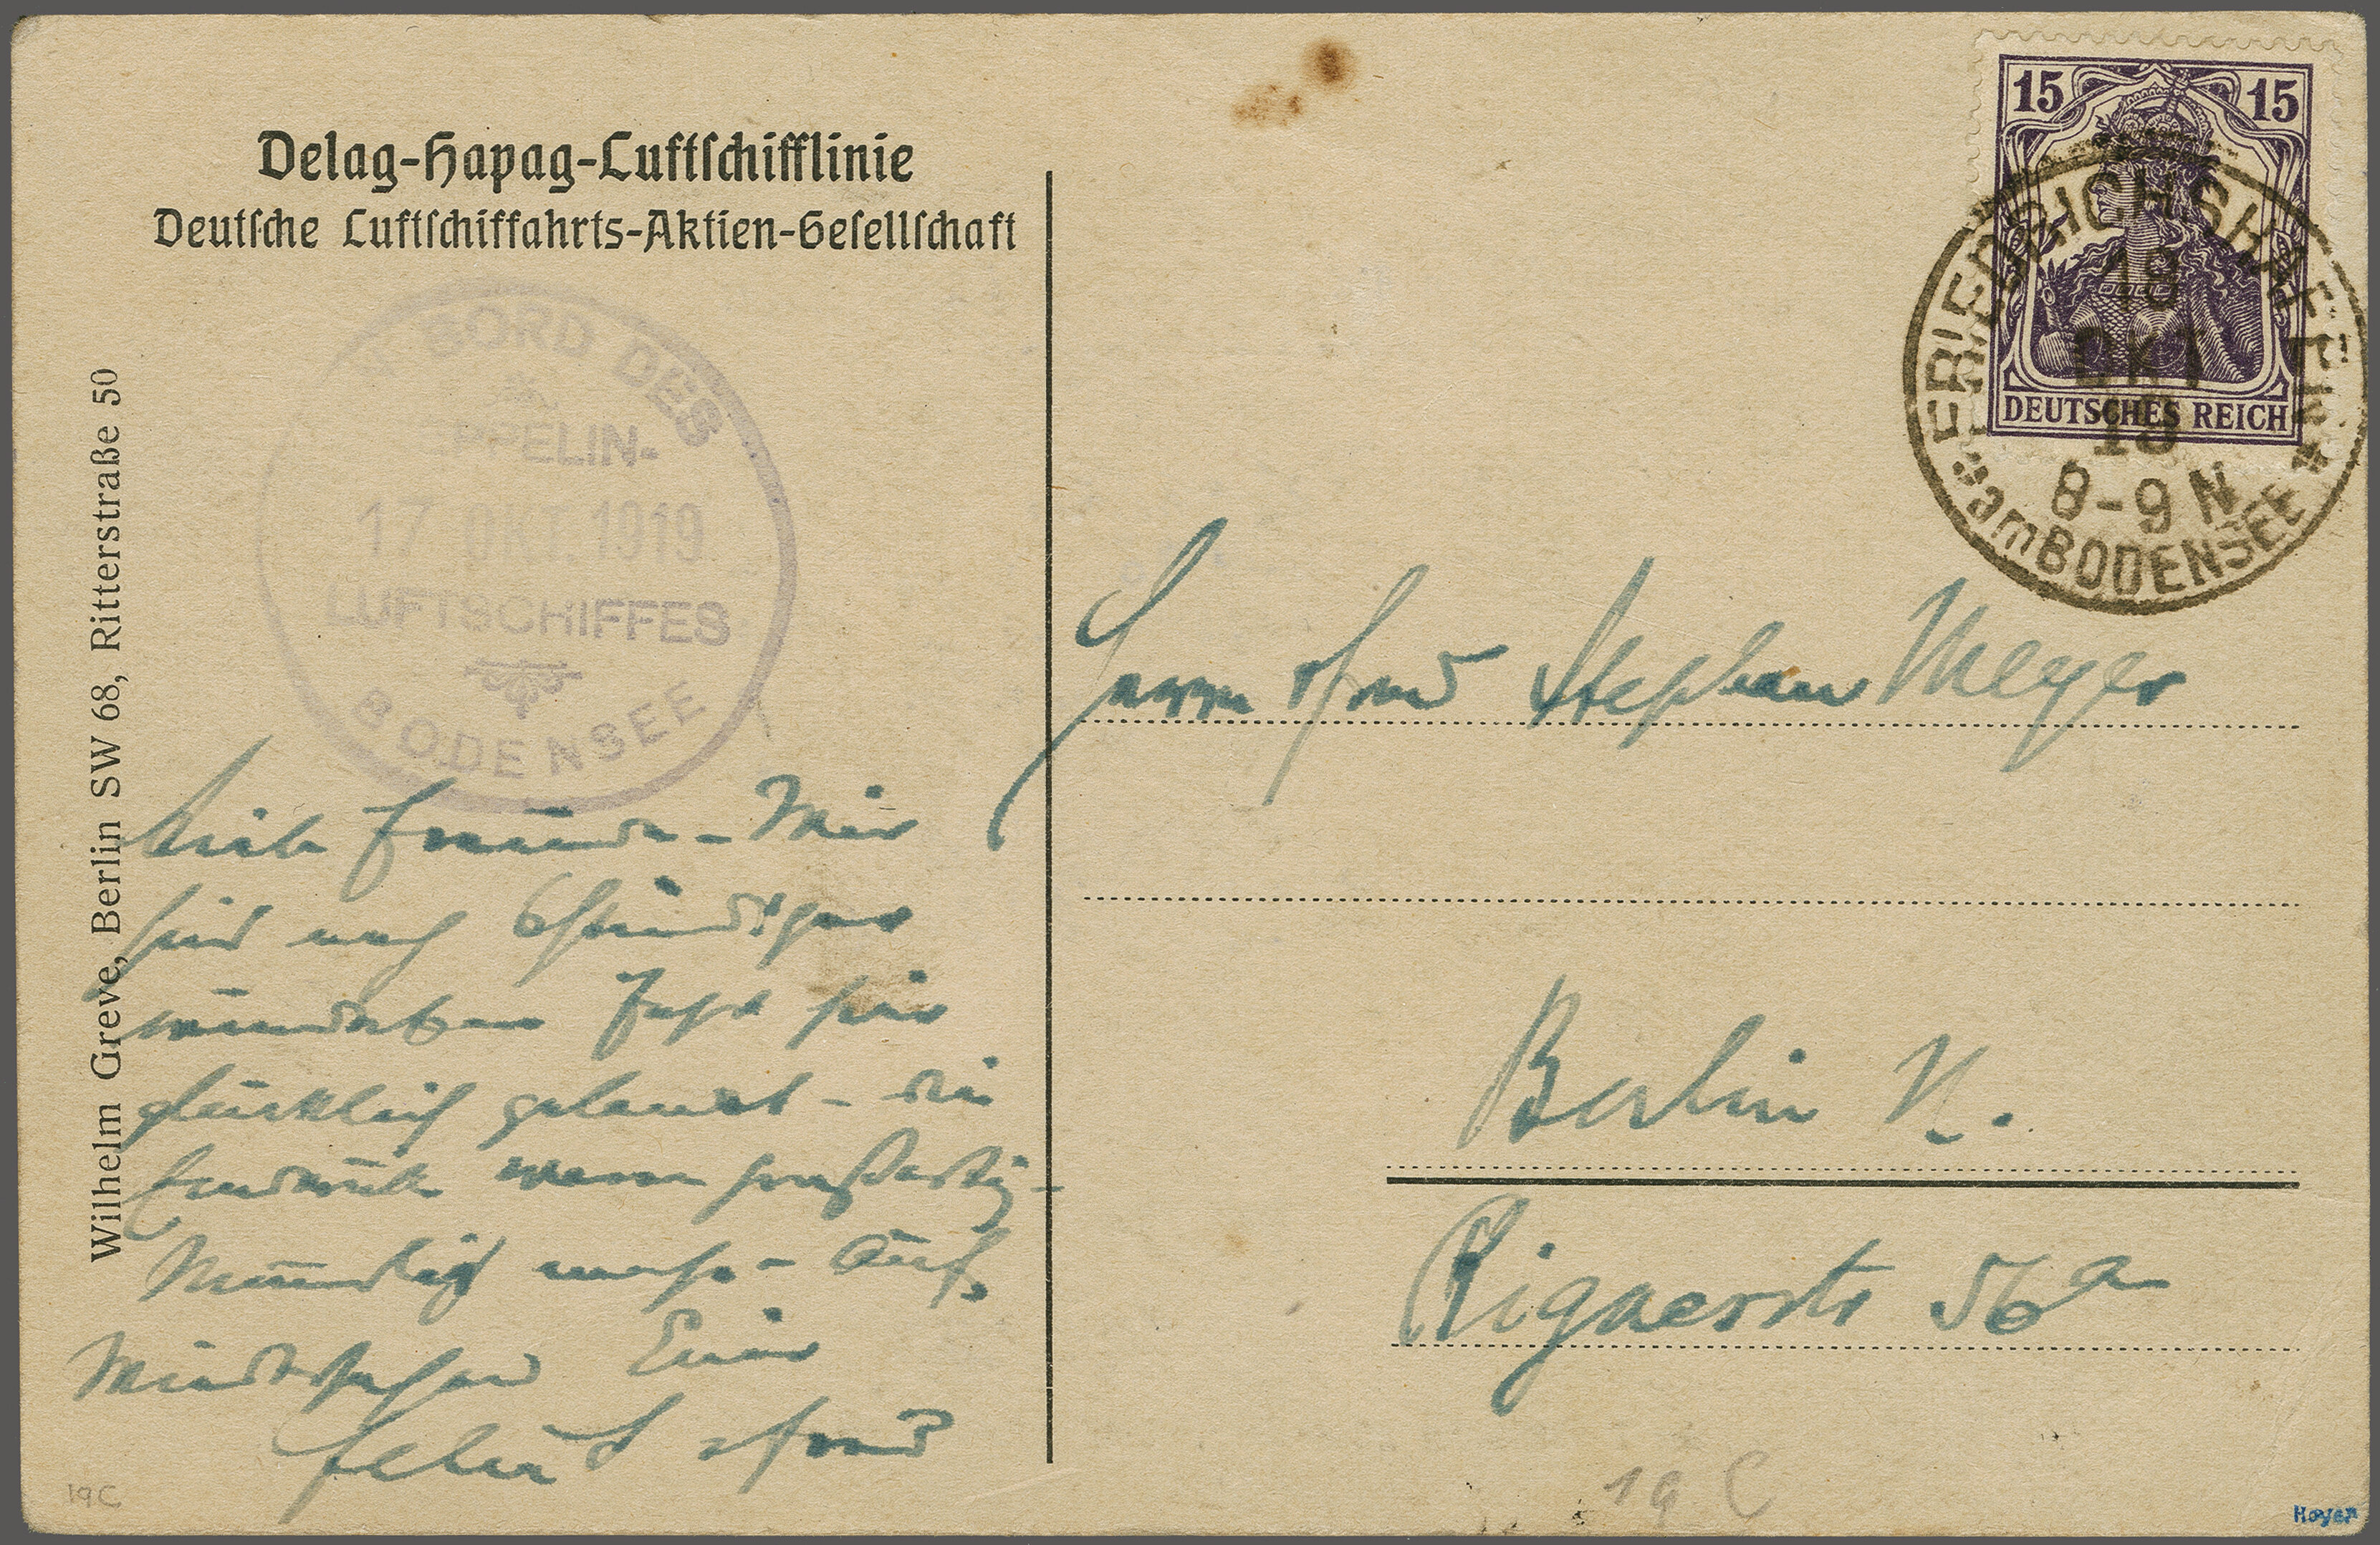 Delag-Hapag-Luftschifflinie
Deutsche Luftschiffahrts-Aktien-Gesellschaft
Wilhelm Greve, Berlin SW 68, Ritterstraße 50
BORD DES
PPELIN-
17 OK 1919
LUFTSCHIFFES
BODENSEE
15 15
DEUTSCHES REICH
FRIEDRICHSHAFEN
18
OKT
19
8-9 N
am BODENSEE
Herrn Stephan Meyer
Berlin N.
Rigaerstr 56a
Liebe Freunde - Wir
sind nach 6stündiger
wunderbarer Fahrt hier
glücklich gelandet - die
Eindrücke waren großartig -
Mündlich mehr - Auf
Wiedersehen Euer
19C
19 C
Hoyer